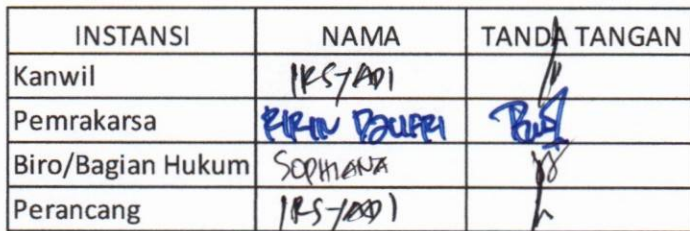 INSTANSI NAMA TANDA TANGAN
Kanwil IRSYADI
Pemrakarsa RIRIN
Biro/Bagian Hukum SOPHIANA
Perancang IRSYADI